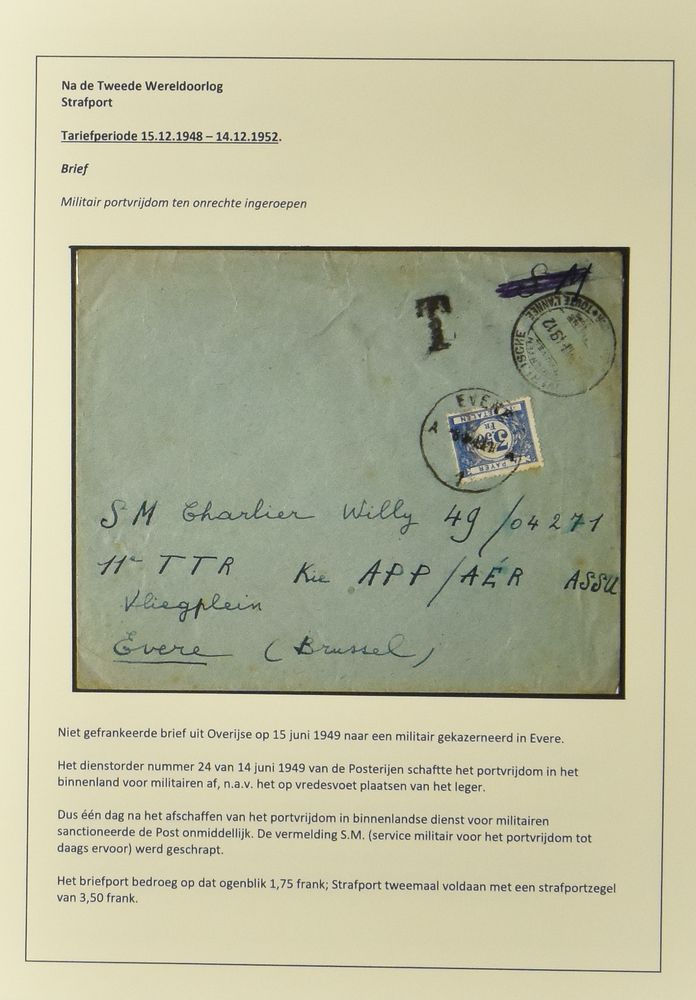 Na de Tweede Wereldoorlog
Strafport
Tariefperiode 15.12.1948 – 14.12.1952.
Brief
Militair portvrijdom ten onrechte ingeroepen
S M
T
TOUTE L'ANNEE
1912
EVERE
BETALEN
3,50
Fr
PAYER
S M Charlier Willy 49/04271
11e TTR Kie APP/AÉR ASSU
Vliegplein
Evere (Brussel)
Niet gefrankeerde brief uit Overijse op 15 juni 1949 naar een militair gekazerneerd in Evere.
Het dienstorder nummer 24 van 14 juni 1949 van de Posterijen schaftte het portvrijdom in het
binnenland voor militairen af, n.a.v. het op vredesvoet plaatsen van het leger.
Dus één dag na het afschaffen van het portvrijdom in binnenlandse dienst voor militairen
sanctioneerde de Post onmiddelijk. De vermelding S.M. (service militair voor het portvrijdom tot
daags ervoor) werd geschrapt.
Het briefport bedroeg op dat ogenblik 1,75 frank; Strafport tweemaal voldaan met een strafportzegel
van 3,50 frank.